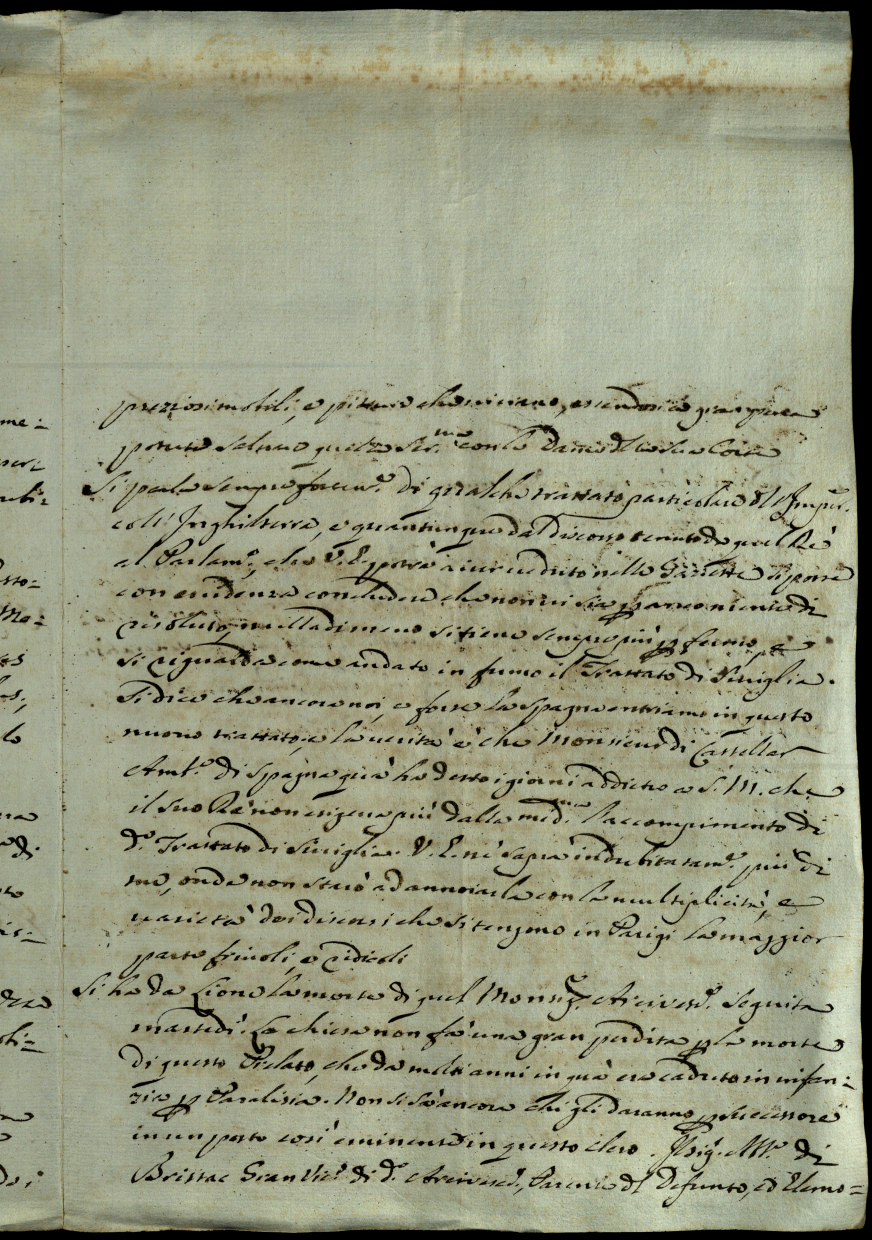 preziosi mobili, e pitture che vi erano, essendosi a gran pena
potuto salvare quella Ser.ma con le Dame della sua Corte
Si parla sempre fortem.e di qualche trattato particolare dell'Imper.
coll'Inghilterra, e quantunque dal discorso tenuto da quel Rè
al Parlam.o, che V. E. potrà aver veduto nelle Gazzette si possa
con evidenza concludere che non vi sia p. ancora niente di
risoluto, nulladimeno si tiene sempre più p. fermo, e
si riguarda come andato in fumo il Trattato di Siviglia.
Si dice che ancora noi, e forse la Spagna entriamo in questo
nuovo trattato, e la verità è che Monsieur di Castellar
Amb.e di Spagna quà ha detto i giorni addietro a S. M. che
il suo Rè non esigeva più dalla med.ma l'accompimento di
d.o Trattato di Siviglia. V. E. ne saprà indubitatam.e più di
me, onde non starò ad annoiarla con la multiplicità, e
varietà dei discorsi che si tengono in Parigi la maggior
parte frivoli, e ridicoli
Si ha da Lione la morte di quel Monsig.r Arcivesc.o seguita
martedì. La chiesa non fà una gran perdita p. la morte
di questo Prelato, che da molti anni in quà era caduto in infan=
zia p. Paralisia. Non si sà ancora chi gli daranno p. successore
in un posto così eminente in questo clero. Il sig. Ab.e di
Brissac Gran Vic.o di d.o Arcivesc.o, Parente del Defunto, ed Elemo=